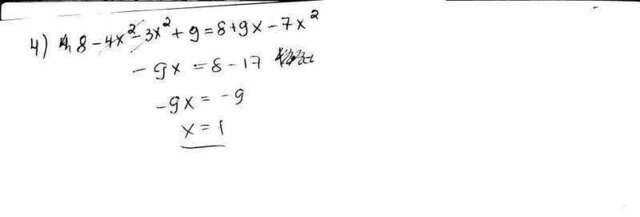 4) 8 - 4x² - 3x² + 9 = 8 + 9x - 7x²
- 9x = 8 - 17
- 9x = - 9
x = 1